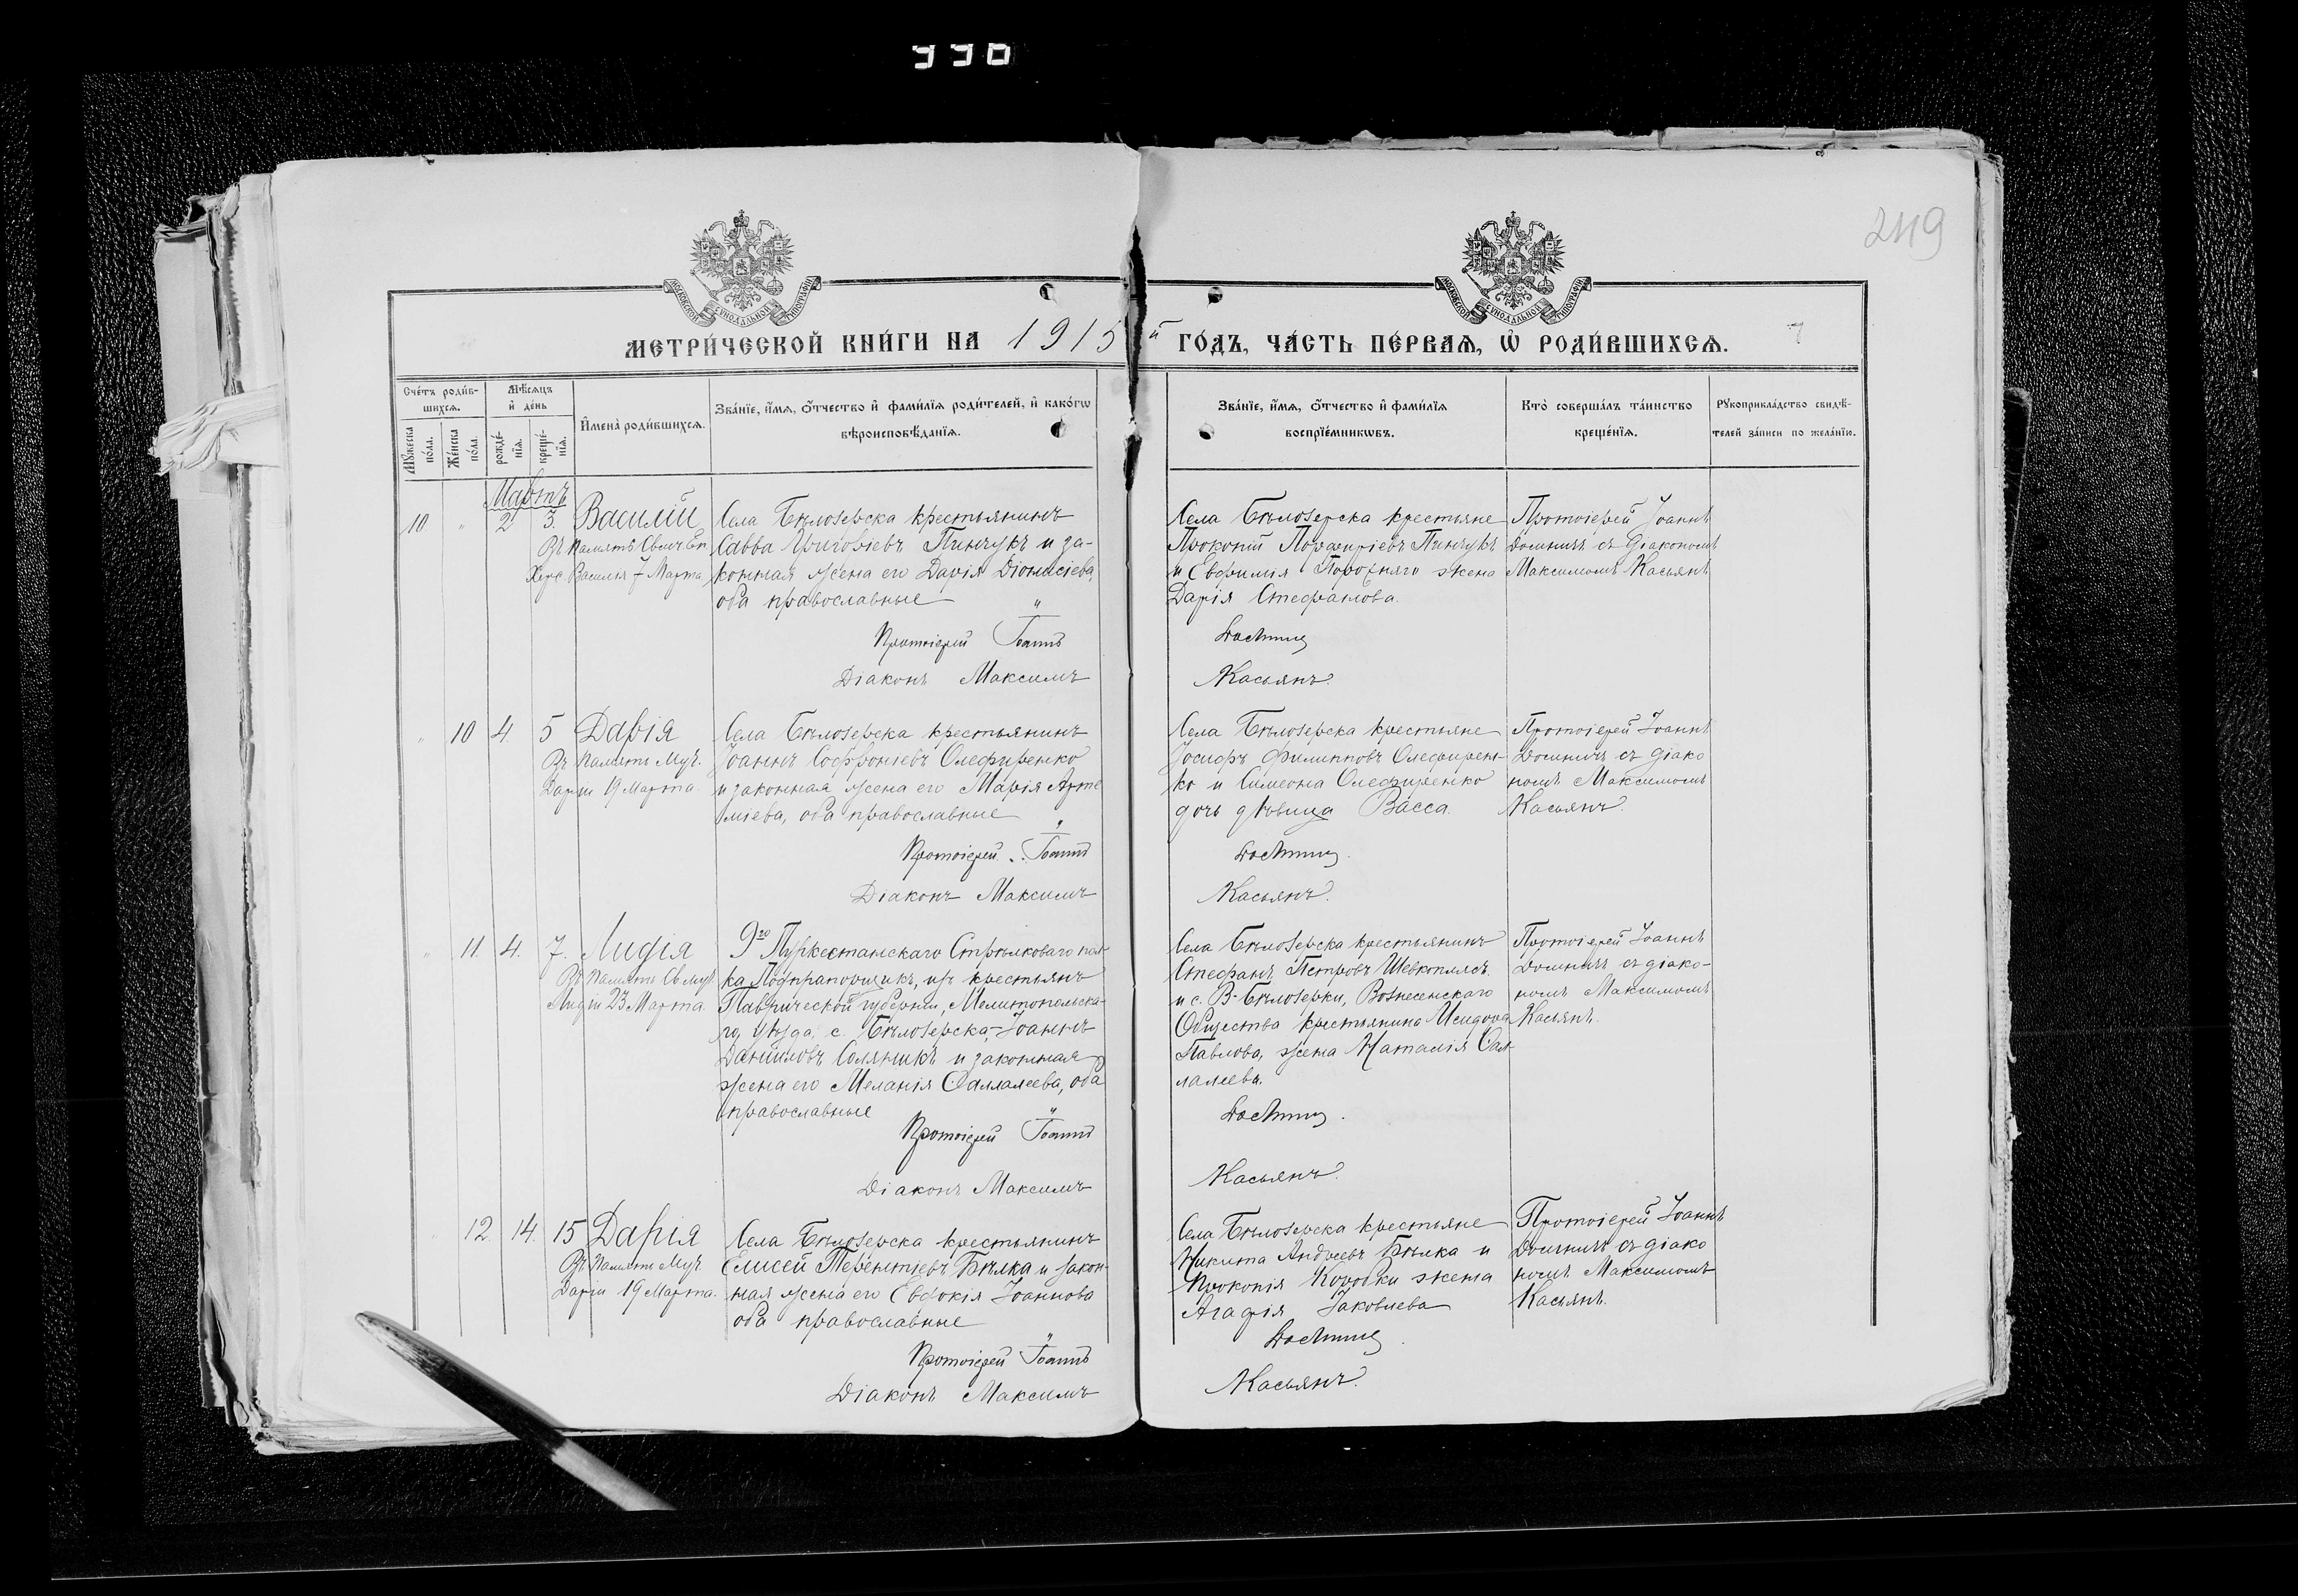 336
249
МОСКОВСКОЙ СѴНОДАЛЬНОЙ ТИПОГРАФІИ
МОСКОВСКОЙ СѴНОДАЛЬНОЙ ТИПОГРАФІИ
МЕТРИ́ЧЕСКОЙ КНИ́ГИ НА 1915 й ГО́ДЪ, ЧА́СТЬ ПЕ́РВАѦ, Ѡ҆ РОДИ́ВШИХСѦ. 7
Сче́тъ роди́вшихсѧ.
Мѹ́жеска по́ла.
Же́нска по́ла.
Мѣ́сѧцъ и҆ де́нь
рожде́нїѧ.
креще́нїѧ.
И҆мена̀ роди́вшихсѧ.
Зва́нїе, и҆́мѧ, ѻ҆́тчество и҆ фами́лїѧ роди́телей, и҆ како́гѡ
вѣроисповѣ́данїѧ.
Зва́нїе, и҆́мѧ, ѻ҆́тчество и҆ фами́лїѧ
воспрїе́мникѡвъ.
Кто̀ соверша́лъ та́инство
креще́нїѧ.
Рѹкоприкла́дство свидѣ́-
телей за́писи по жела́нїю.
Мартъ
10 " 2 3. Василій
Въ память Свмч. Еп.
Херс. Василія 7 Марта
Села Бѣлозерска крестьянинъ
Савва Григоріевъ Пинчукъ и за-
конная жена его Дарія Діонисіева,
оба православные
Протоіерей Іоаннъ
Діаконъ Максимъ
Села Бѣлозерска крестьяне
Прокопій Порфиріевъ Пинчукъ
и Евфимія Порожняго жена
Дарія Стефанова.
Касьянъ.
Протоіерей Іоаннъ
съ діакономъ
Максимомъ Касьянъ
" 10 4. 5 Дарія
Въ память Муч.
Даріи 19 Марта.
Села Бѣлозерска крестьянинъ
Іоаннъ Софроніевъ Олефиренко
и законная жена его Марія Арте
міева, оба православные
Протоіерей Іоаннъ
Діаконъ Максимъ
Села Бѣлозерска крестьяне
Іосифъ Филипповъ Олефирен-
ко и Симеона Олефиренко
дочь дѣвица Васса.
Касьянъ.
Протоіерей Іоаннъ
съ діако
номъ Максимомъ
Касьянъ.
" 11. 4. 7. Лидія
Въ память Св. муч.
Лидіи 23 Марта.
9го Туркестанскаго Стрѣлковаго пол-
ка Подпрапорщикъ, изъ крестьянъ
Таврической губерніи, Мелитопольска-
го, уѣзда, с. Бѣлозерска, Іоаннъ
Даніиловъ Соляникъ и законная
жена его Меланія Саллалеева, оба
православные
Протоіерей Іоаннъ
Діаконъ Максимъ
Села Бѣлозерска крестьянинъ
Стефанъ Петровъ Шевкоплясъ
и с. В-Бѣлозерки, Вознесенскаго
Общества крестьянина Исидора
Павлова, жена Наталія Сал-
лалеева.
Касьянъ.
Протоіерей Іоаннъ
съ діако-
номъ Максимомъ
Касьянъ.
" 12. 14. 15 Дарія
Въ память Муч.
Даріи 19 Марта.
Села Бѣлозерска крестьянинъ
Елисей Терентіевъ Бѣлка и закон-
ная жена его Евдокія Іоаннова
оба православные
Протоіерей Іоаннъ
Діаконъ Максимъ
Села Бѣлозерска крестьяне
Никита Андреевъ Бѣлка и
Прокопія Коробки жена
Агафія Іаковлева
Касьянъ.
Протоіерей Іоаннъ
съ діако
номъ Максимомъ
Касьянъ.